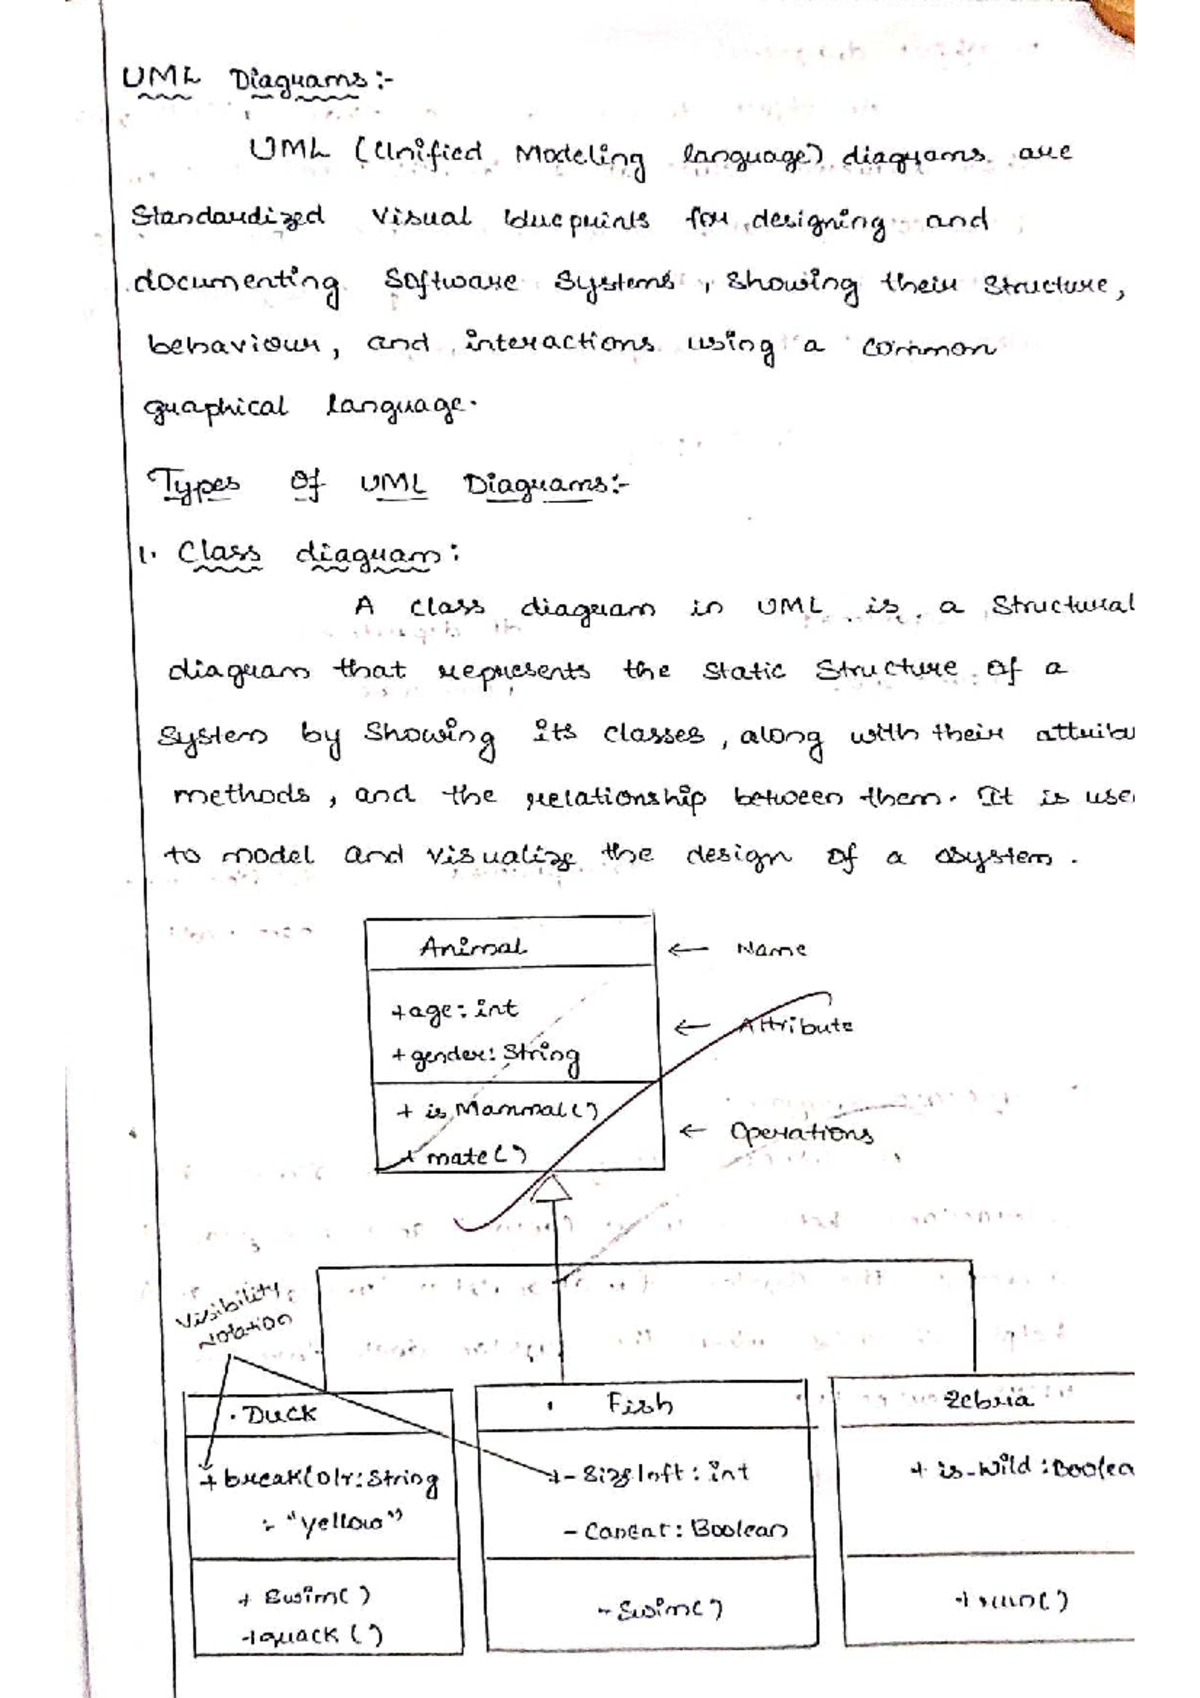 UML Diagrams:-
UML (Unified Modeling language) diagrams are
Standardized visual blueprints for designing and
documenting Software Systems, showing their structure,
behaviour, and interactions using a common
graphical language.
Types Of UML Diagrams:-
1. Class diagram:
A class diagram in UML is a Structural
diagram that represents the static Structure of a
System by Showing its classes, along with their attribu
methods, and the relationship between them. It is use
to model and visualize the design of a system.
Animal
← Name
+age: int
← Attribute
+ gender: String
+ is Mammal()
← Operations
+ mate()
Visibility
Notation
Duck
Fish
Zebria
: String
- int
+ is-wild : Boolea
: "yellow"
- CanEat: Boolean
+ Swim()
- Swim()
+ run()
+quack()